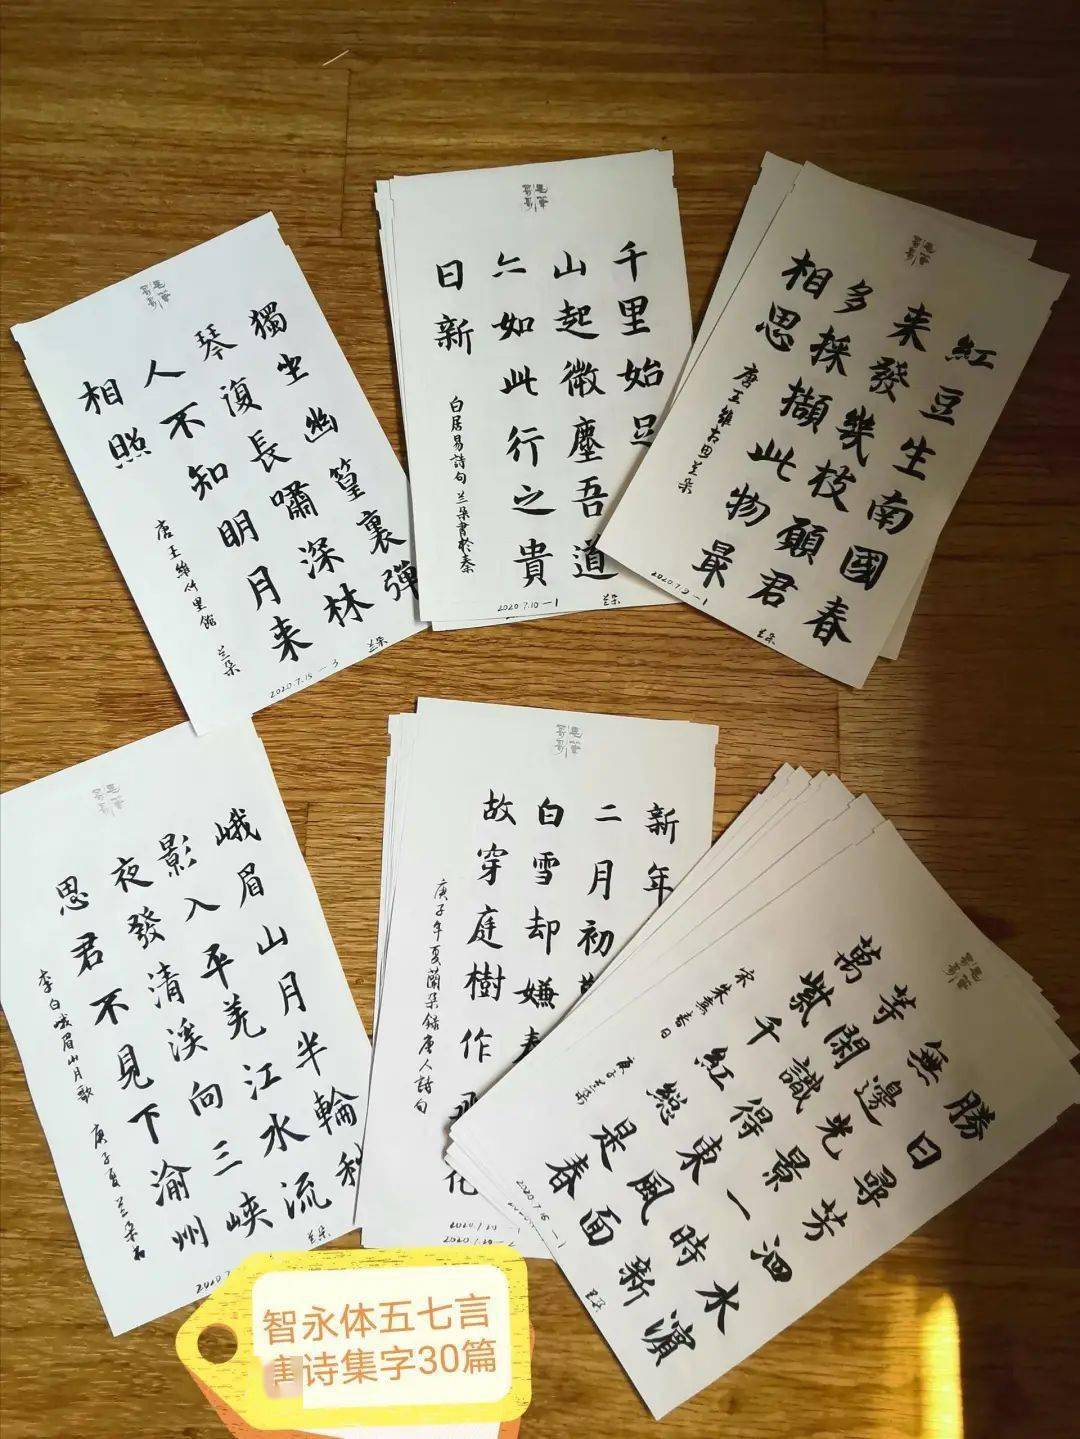 獨坐幽篁裏彈
琴復長嘯深林
人不知明月来
相照
唐王維竹里館 兰朵
2020.7.15—3 兰朵
千里始足
山起微塵吾道
亦如此行之貴
日新
白居易詩句 兰朵書於秦
2020.7.10—1 兰朵
紅豆生南國春
来發幾枝願君
多採擷此物最
相思
唐王維相思兰朵
2020.7.9—1 兰朵
峨眉山月半輪秋
影入平羌江水流
夜發清溪向三峡
思君不見下渝州
李白峨眉山月歌 庚子夏兰朵书
2020.7 兰朵
新年
二月初
白雪却嫌春
故穿庭樹作飛花
庚子年夏蘭朵録唐人詩句
勝日尋芳泗水濱
無邊光景一時新
等閑識得東風面
萬紫千紅總是春
宋朱熹春日 庚子兰朵
2020.7.16—1 兰朵
智永体五七言
唐诗集字30篇